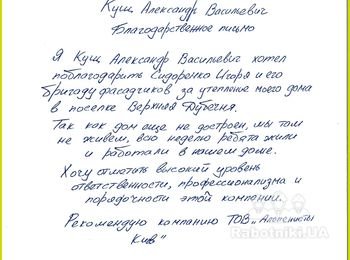 Кущ Александр Васильевич
Благодарственное письмо
Я Кущ Александр Васильевич хотел
поблагодарить Сидоренко Игоря и его
бригаду фасадчиков за утепление моего дома
в поселке Верхняя Дубечня.
Так как дом еще не достроен, мы там
не живем, всю неделю ребята жили
и работали в нашем доме.
Хочу отметить высокий уровень
ответственности, профессионализма и
порядочности этой компании.
Рекомендую компанию ТОВ „Альпенисты
Киів"
Rabotniki.UA